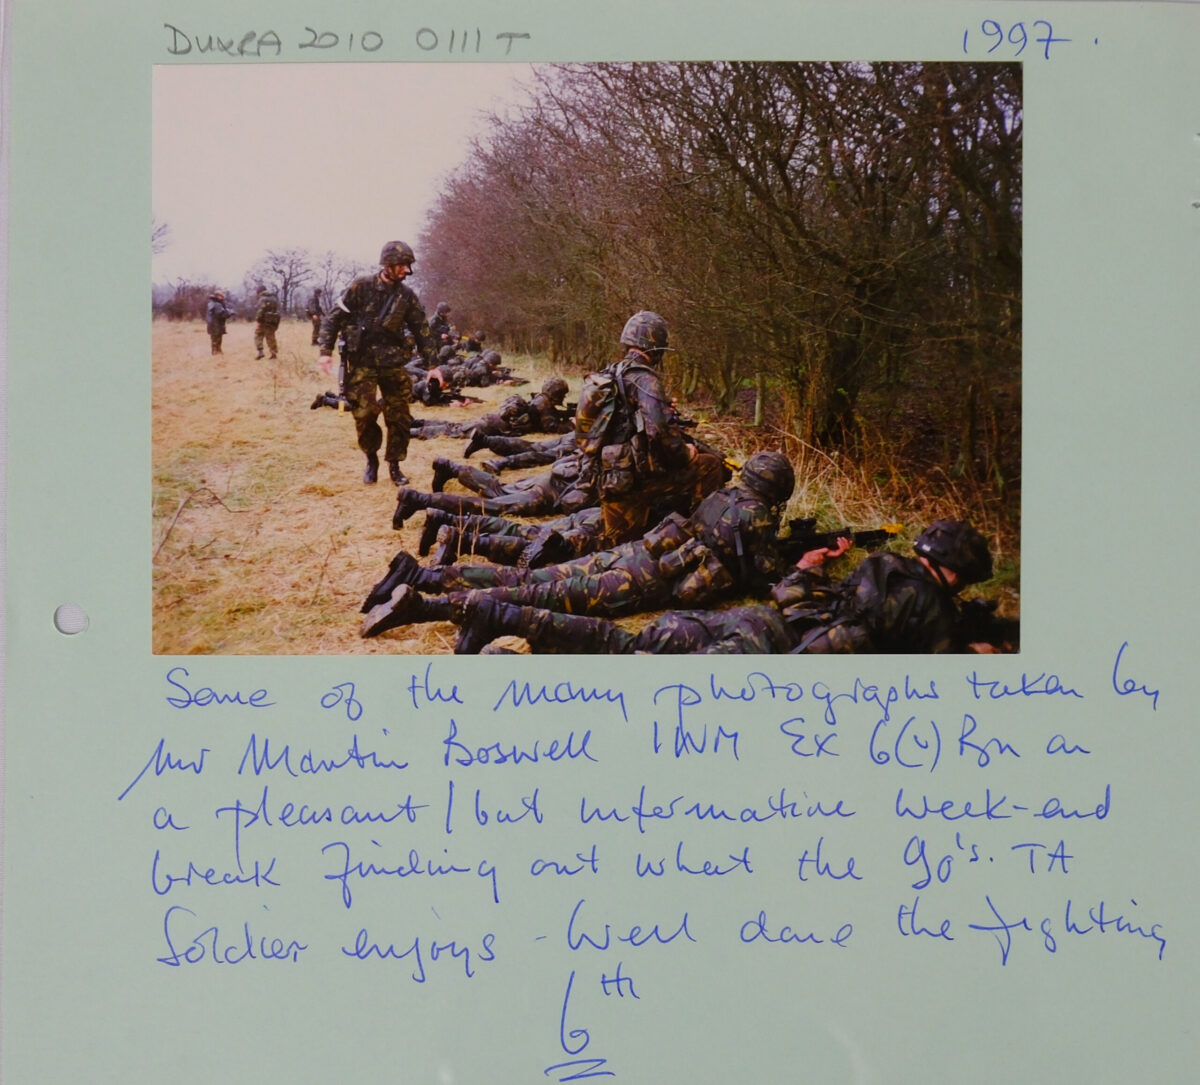 DUXRA 2010 0111 T
1997.
Some of the many photographs taken by
Mr Martin Boswell IWM Ex 6(V) Bn on
a pleasant / but informative week-end
break finding out what the 90's. TA
Soldier enjoys - Well done the fighting
6th